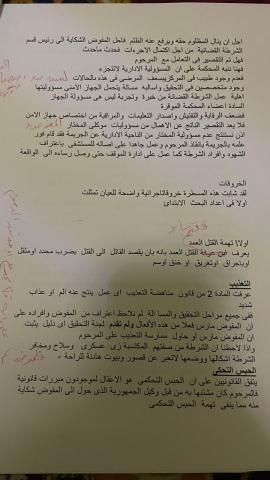 اجل ان ينال المظلوم حقه ويرفع عنه الظلم فاحل المفوض الشكاية الى رئيس قسم
الشرطة القضائية من اجل اكتمال الاجرءات فحدث ماحدث
فهل تم التقصير فى التعامل مع المرحوم
وهنا ننبه المحكمة على ان المسؤولية الادارية لاتتجزء
فعدم وجود طبيب فى المركزيسعف المرضى فى هذه بالحالات
وجود متخصصين فى التحقيق واساليبه مسالة يتحمل الجهاز الامنى مسؤوليتها
اهلية عمل الشرطة القضائية من خبرة وتجربة ليس هى مسؤولة الجهاز
السادة اعضاء المحكمة الموقرة
فضعف الرقابة والتفتيش واصدار التعليمات والمراقبة من اختصاص جهاز الامن
فلا يعد التقصير الناتج عن الاهمال من مسؤوليات موكلى المختار
اذن نستنتج عدم مسؤولية المختار من الناحية الادارية عن الجريمة فقد قام فور
علمه بالجريمة بانقاذ المرحوم وعمل جاهدا على اصاله للمستشفى باعتراف
الشهود وافراد الشرطة كما عمل على ادارة الموقف حتى وصل رساءه الى الواقعة
الخروقات
لقد شابت هذه المسطرة خروقاتاجرانية واضحة للعيان تمثلت
اولا فى اعداد البحث الابتدائ
اولا تهمة القتل العمد
يعرف القتل العمد بانه بان يقصد القاتل الى القتل بضرب محدد اومثقل
اوباحراق اوتغريق او خنق اوسم
التعذيب
عرفت المادة 2 من قانون مناهضة التعذيب اى عمل ينتج عنه الم او عذاب
شديد
ففى جميع مراحل التحقيق والمسا الة لم نلاحظ اعتراف من المفوض وافراده على
ان المفوض مارس فعلا من هذه الأفعال ولم تقدم لجنة التحقيق اى دليل يثبت
ان المفوض مارس او حاول ممارسة التعذيب على المرحوم
واذا لاحظنا ان الشرطة من صفتهم المكتسبة زى عسكرى وسلاح ومخافر
الشرطة اشكالها ووضعها لاتعبر عن قصور وبيوت هادئة للراحة
الحبس التحكمى
يتفق القانونيين على ان الحبس التحكمى هو الاعتقال لموجودون مبررات قانونية
فالمرحوم كان مشتبها به من قبل وكيل الجمهورية الذى حول الى المفوض شكاية
منه مما ينفى تهمة الحبس التحكمى